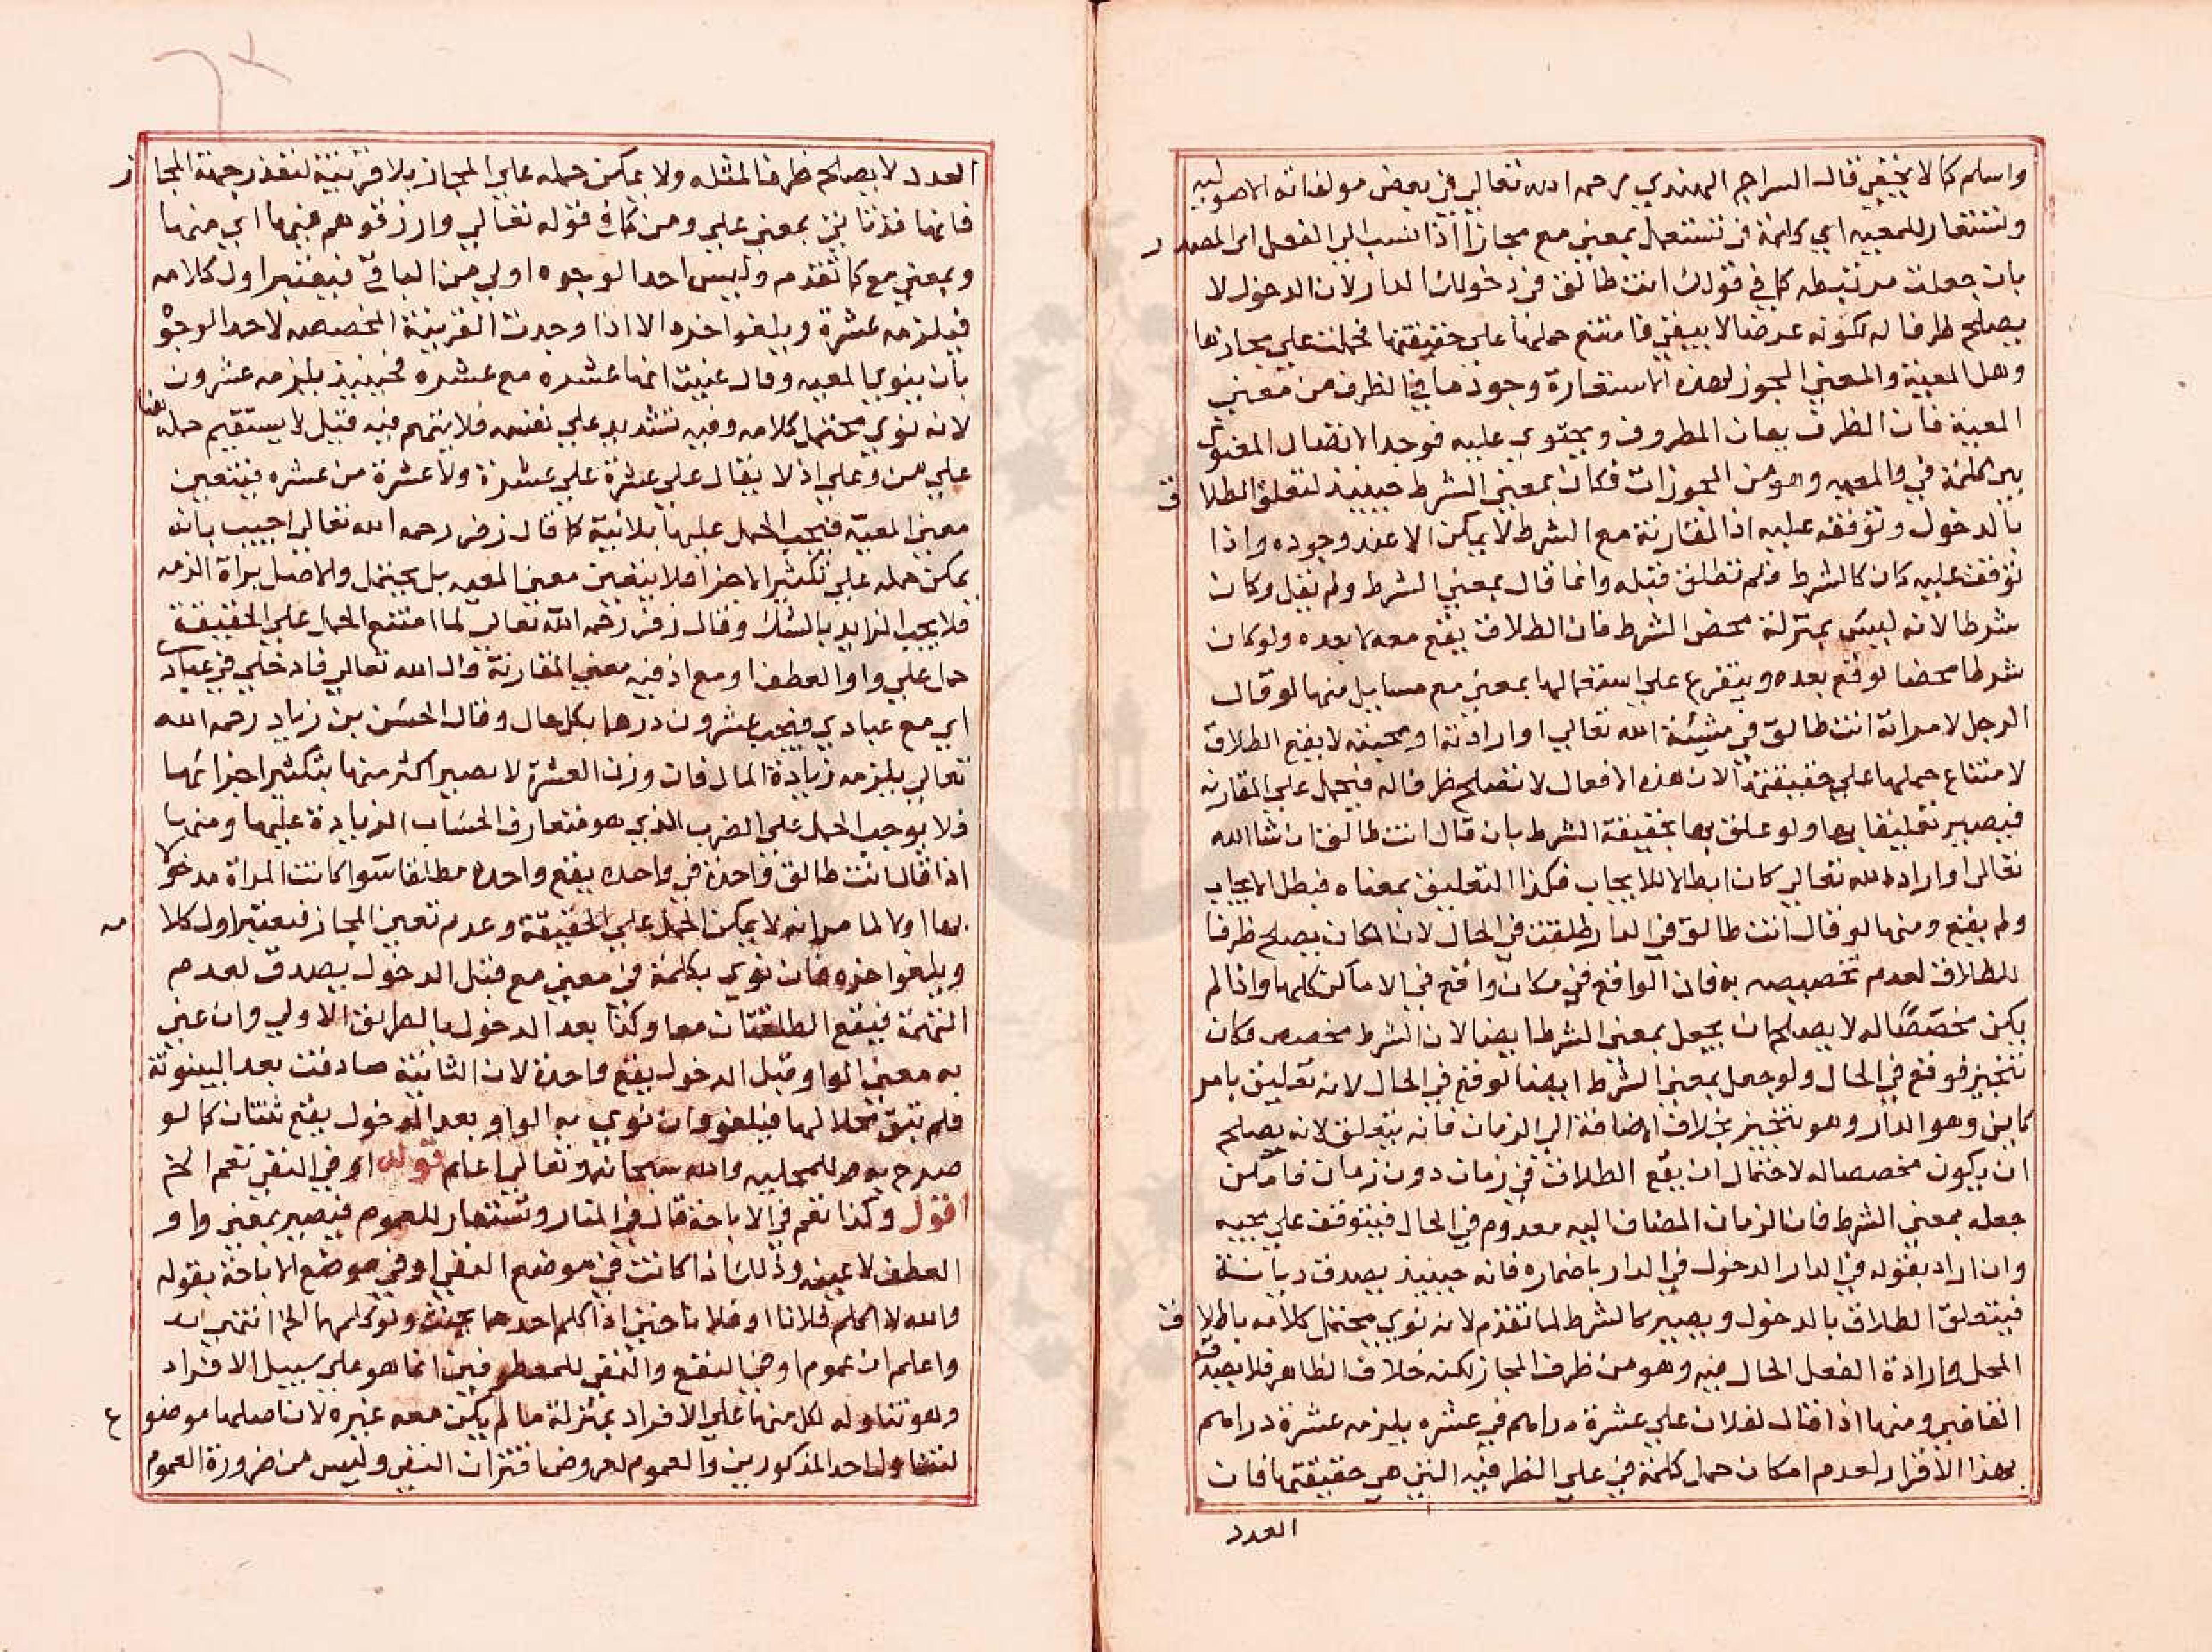 واسلم كما لا يخفي قال السراج الهندي رحمه الله تعالي في بعض مولفاته الاصوليه
وتستعار للمعيه اي كلمة في تستعمل بمعني مع مجازا اذا نسب الي الفعل اي المصدر
بان جعلت مرتبطه كما في قولك انت طالق في دخولك الدار لان الدخول لا
يصلح ظرفا له لكونه عرضا لا يبقي فامتنع حملها علي حقيقتها فحملت علي مجازها
وهل المعية والمعني المجوز لهذه الاستعارة وجود ما في الظرف من معني
المعية فان الظرف يعان المظروف ويحتوي عليه فوجد الاتصال المعنوي
بين كلمة في والمعيه وهو من المجوزات فكان بمعني الشرط حينيذ لتعلق الطلاق
بالدخول وتوقفه عليه اذ المقارنة مع الشرط لا يمكن الا عند وجوده واذا
توقف عليه كان كالشرط فلم تطلق قبله وانما قال بمعني الشرط ولم يقل وكان
شرطا لانه ليس بمنزلة محض الشرط فان الطلاق يقع معه لا بعده ولو كان
شرطا محضا لوقع بعده ويتفرع علي استعمالها بمعني مع مسايل منها لو قال
الرجل لامراته انت طالق في مشيئة الله تعالي او ارادته او محبته لا يقع الطلاق
لامتناع حملها علي حقيقتها لان هذه الافعال لا تصلح ظرفا له فيحمل علي المقارنه
فيصير تعليقا بها ولو علق بها بحقيقة الشرط بان قال انت طالق ان شا الله
تعالي او اراد الله تعالي كان ابطالا للايجاب فكذا التعليق بمعناه فبطل الايجاب
ولم يقع ومنها لو قال انت طالق في الدار طلقت في الحال لان المكان يصلح ظرفا
للطلاق لعدم تخصيصه به فان الواقع في مكان واقع في الاماكن كلها واذا لم
يكن مخصصا له لا يصلح ان يجعل بمعني الشرط ايضا لان الشرط مخصص فكان
تنجيز فوقع في الحال ولو جعل بمعني الشرط ايضا لوقع في الحال لانه تعليق بامر
كاين وهو الدار وهو تنجيز بخلاف اضافة الي الزمان فانه يتعلق لانه يصلح
ان يكون مخصصا له لاحتمال ان يقع الطلاق في زمان دون زمان فامكن
جعله بمعني الشرط فان الزمان المضاف اليه معدوم في الحال فيتوقف علي مجيه
وان اراد بقوله في الدار الدخول في الدار باضماره فانه حينيذ يصدق ديانة
فيتعلق الطلاق بالدخول ويصير كالشرط لما تقدم لانه نوي محتمل كلامه باطلاق
المحل وارادة الفعل الحال فيه وهو من ظرف المجاز لكنه خلاف الظاهر فلا يصدقه
القاضي ومنها اذا قال لفلان علي عشرة دراهم في عشره يلزمه عشرة دراهم
بهذا الاقرار لعدم امكان حمل كلمة في علي الظرفيه التي هي حقيقتها فان
العدد
العدد لا يصلح ظرفا لمثله ولا يمكن حمله علي المجاز بلا قرينة لتعذر جهة المجاز
فانها قد تاتي بمعني علي ومن كما في قوله تعالي وارزقوهم فيها اي منها
وبمعني مع كما تقدم وليس احد الوجوه اولي من الباقي فيعتبر اول كلامه
فيلزمه عشرة ويلغو اخره الا اذا وجدت القرينة المخصصه لاحد الوجوه
بان ينوي المعيه وقال عنيت انها عشره مع عشره فحينيذ يلزمه عشرون
لانه نوي محتمل كلامه وفيه تشديد علي نفسه فلا يتهم فيه قيل لا يستقيم حملها
علي من وعلي اذ لا يقال علي عشرة علي عشرة ولا عشرة من عشره فيتعين
معني المعيّة فيجب الحمل عليها بلا نيّة كما قال زفر رحمه الله تعالي اجيب بانه
يمكن حمله علي تكثير الاجزا فلا يتعين معني المعيه بل يحتمل والاصل براة الذمه
فلا يجب الزايد بالشك وقال زفر رحمه الله تعالي لما امتنع الحمل علي الحقيقة
حمل علي واو العطف او مع اذ فيه معني المقارنة قال الله تعالي فادخلي في عبادي
اي مع عبادي فيجب عشرون درهما بكل حال وقال الحسن بن زياد رحمه الله
تعالي يلزمه زيادة المال فان وزن العشرة لا يصير اكثر منها بتكثير اجزائها
فلا يوجب الحمل علي الضرب الذي هو متعارف الحساب الزيادة عليها ومنها
اذا قال انت طالق واحدة في واحده يقع واحده مطلقا سوا كانت المراة مدخولا
بها او لا لما مر انه لا يمكن الحمل علي الحقيقة وعدم تعين المجاز فيعتبر اول كلامه
ويلغو اخره فان نوي بكلمة في معني مع قبل الدخول يصدق لعدم
التهمة فيقع الطلقتان معا وكذا بعد الدخول بالطريق الاولي وان عني
به معني الواو قبل الدخول يقع واحدة لان الثانية صادفت بعد البينونة
فلم تبق محلا لها فيلغو وان نوي به الواو بعد الدخول يقع ثنتان كما لو
صرح به للمحليه والله سبحانه وتعالي اعلم قوله او في النفي تعم الخ
اقول وكذا تعم في الاباحة قال في المنار وتستعار للعموم فيصير بمعني واو
العطف لا عينه وذلك اذا كانت في موضع النفي او في موضع الاباحة بقوله
والله لا اكلم فلانا او فلانا حتي اذا كلم احدهما يحنث ولو كلمهما الخ انتهي
واعلم ان عموم او في النفع والنفي للمعطوفين انما هو علي سبيل الافراد
وهو تناوله لكل منها علي الافراد بمنزلة ما لم يكن معه غيره لان اصلها موضوع
لتناول احد المذكورين والعموم لعروض اقتران النفي وليس من ضرورة العموم